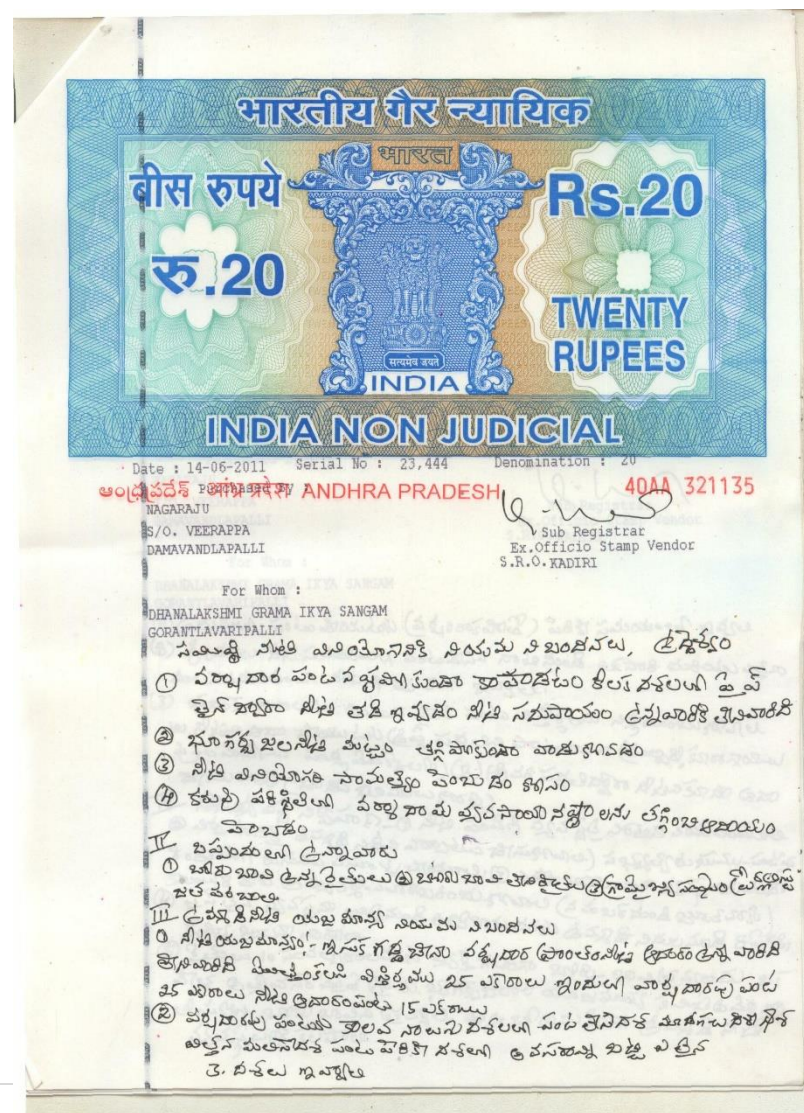 भारतीय गैर न्यायिक
भारत
बीस रुपये
Rs.20
रु.20
TWENTY
RUPEES
सत्यमेव जयते
INDIA
INDIA NON JUDICIAL
Date : 14-06-2011 Serial No : 23,444 Denomination : 20
Purchased By :
ఆంధ్ర ప్రదేశ్ आंध्र प्रदेश ANDHRA PRADESH 40AA 321135
NAGARAJU
S/O. VEERAPPA
DAMAVANDLAPALLI
Sub Registrar
Ex.Officio Stamp Vendor
S.R.O. KADIRI
For Whom :
DHANALAKSHMI GRAMA IKYA SANGAM
GORANTLAVARIPALLI
సమిష్ఠి నీటి వినియోగానికి నియమ నిబందనలు, ఉద్దేశ్యం
① వర్షాదార పంట నష్టపోకుండా కాపాడటం కీలక దశలలో పైప్
లైన్ ద్వారా నీటి తడి ఇవ్వడం నీటి సదుపాయం ఉన్నవారికి లేనివారికి
② భూగర్భ జలనీటి మట్టం తగ్గిపోకుండా వాడుకోవడం
③ నీటి వినియోగ సామర్థ్యం పెంచుడం కోసం
④ కరువు పరిస్థితిలో వర్షాదార వ్యవసాయ నష్టాలను తగ్గించి ఆదాయం
పొందడం
II ఒప్పందంలో ఉన్నవారు
① బోరు బావి ఉన్న రైతులు ② బోరు బావి లేని రైతులు ③ గ్రామైక్య సంఘం
III ఉమ్మడి నీటి యజమాన్య నియమ నిబందనలు
① నీటి యజమాన్యం:- వర్షాదార ప్రాంతం నీటి ఆదారం ఉన్న వారిది
లేనివారిది మొత్తం కలిసి విస్తీర్ణము 25 ఎకరాలు ఇందులో వార్షాదారపు పంట
25 ఎకరాలు నీటి ఆదారం పంట 15 ఎకరాలు
② వర్షాదారపు పంటకు కాలవ నాలుగు దశలలో పంట
దశలో అవసరాన్ని బట్టి
3. దశలు